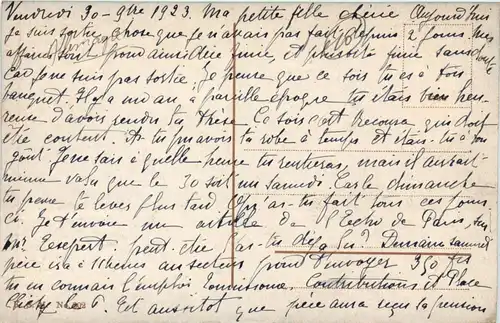 Vendredi 30 - 9bre 1923. Ma petite fille chérie Aujourd'hui
je suis sortie, chose que je n'avais pas fait depuis 2 jours, mes
affaires sont finie, et plus tôt finie sans doute
Car je ne suis pas sortie. Je pense que ce soir tu es à ton
banquet. Il y a un an, à pareille époque tu étais bien heu-
reuse d'avoir rendu ta thèse. Ce soir c'est qui doit
être content. As-tu pu avoir ta robe à temps et était-tu à ton
goût. Je ne sais à quelle heure tu rentreras, mais il aurait
mieux valu que le 30 soit un samedi. Car le dimanche
tu peux te lever plus tard. Qu'as-tu fait tous ces jours
ci. Je t'envoie un article de l'Echo de Paris, sur
Mr peut-être l'as-tu déjà lu. Demain samedi
père ira à 11 heures au secteur pour t'envoyer 350 frs
tu en connais l'emploi Contributions et Place
Clichy No 6. Et aussitôt que père aura reçu la pension